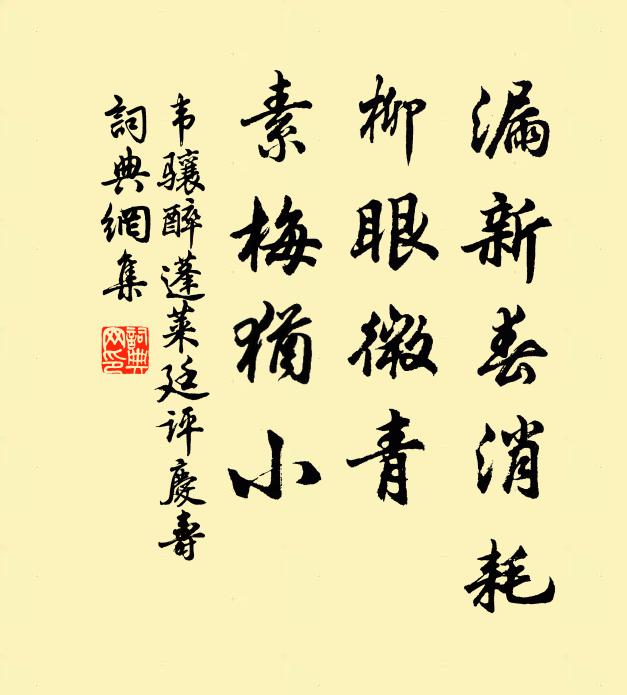 漏新春消耗
柳眼微青
素梅犹小
韦骧醉蓬莱廷评慶壽
詞典網集
詞典
网印